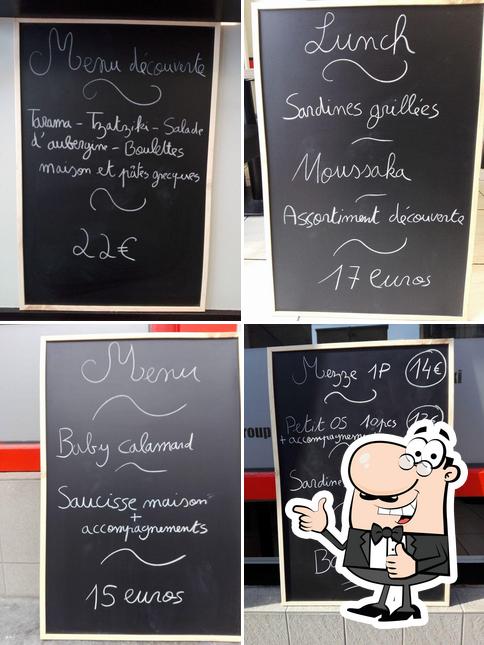 Menu découverte
Tarama - Tzatziki - Salade
d'aubergine - Boulettes
maison et pâtes grecques
22€
Lunch
Sardines grillées
Moussaka
Assortiment découverte
17 euros
Menu
Baby calamard
Saucisse maison
+
accompagnements
15 euros
Mezze 1P 14€
Petit OS 10pcs
+ accompagnem
Sardine
Ba
roup
ki